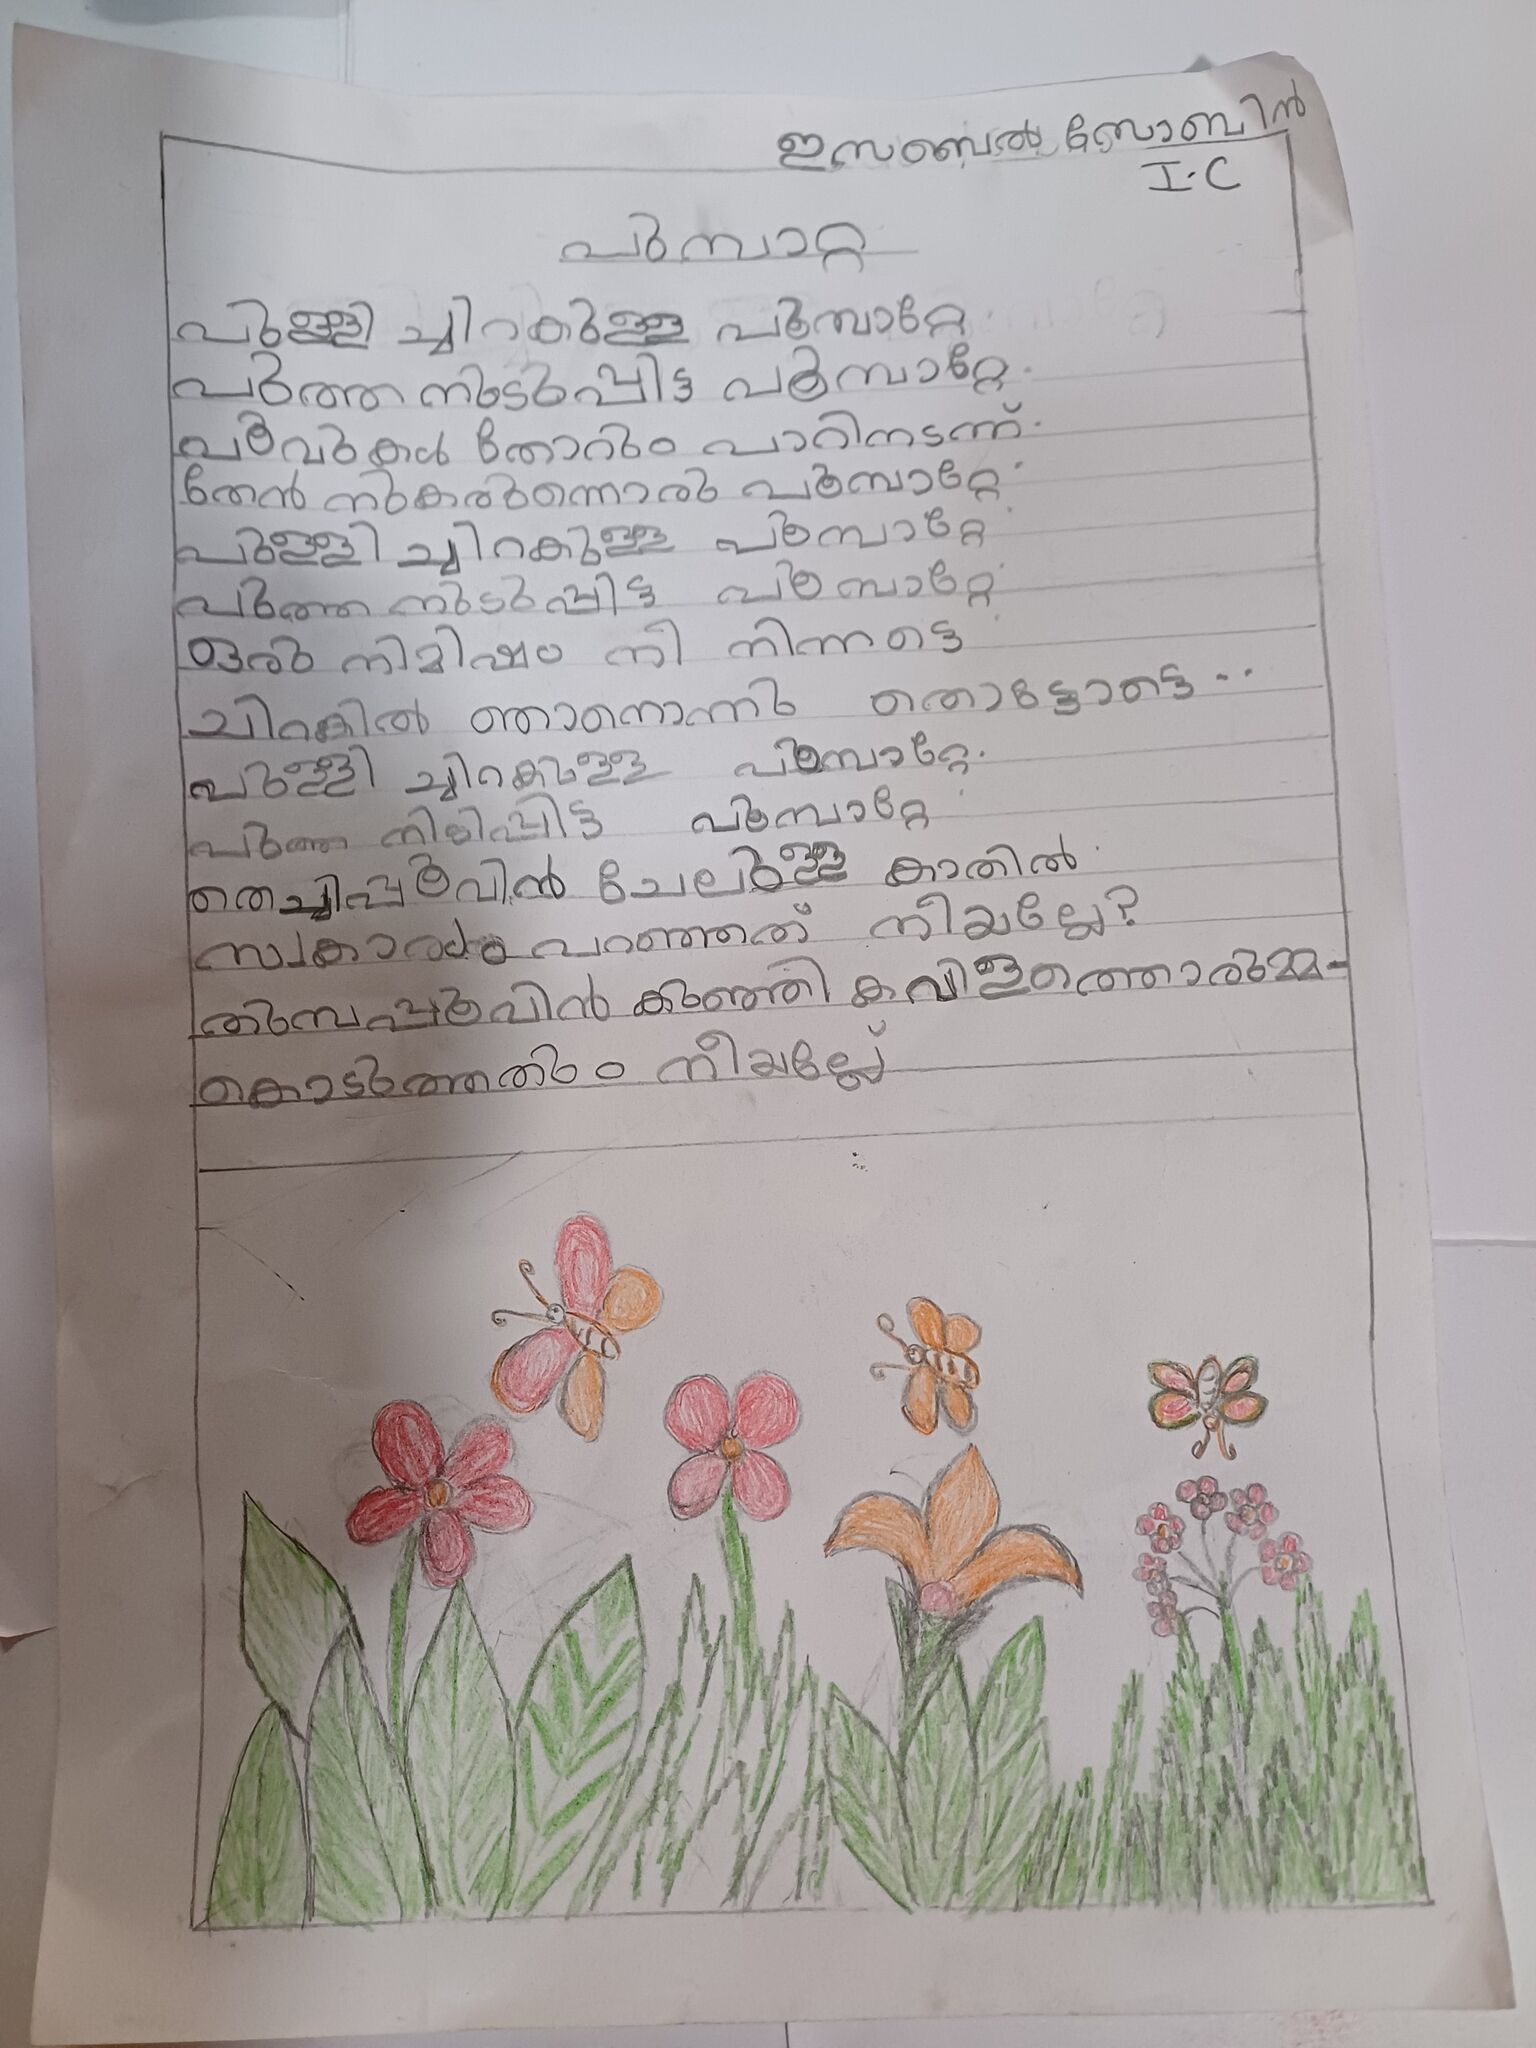 ഇസബെൽ സോബിൻ
I.C
പൂമ്പാറ്റ
പുള്ളി ച്ചിറകുള്ള പൂമ്പാറ്റേ
പുത്തനുടുപ്പിട്ട പൂമ്പാറ്റേ.
പൂവുകൾ തോറും പാറിനടന്ന്.
തേൻ നുകരുന്നൊരു പൂമ്പാറ്റേ
പുള്ളി ച്ചിറകുള്ള പൂമ്പാറ്റേ
പുത്തനുടുപ്പിട്ട പൂമ്പാറ്റേ
ഒരു നിമിഷം നീ നിന്നട്ടെ
ചിറകിൽ ഞാനൊന്നു തൊട്ടോട്ടെ..
പുള്ളി ച്ചിറകുള്ള പൂമ്പാറ്റേ.
പുത്തനുടുപ്പിട്ട പൂമ്പാറ്റേ
തെച്ചിപ്പൂവിൻ ചേലുള്ള കാതിൽ
സ്വകാര്യം പറഞ്ഞത് നീയല്ലേ?
തുമ്പപ്പൂവിൻ കുഞ്ഞി കവിളത്തൊരുമ്മ-
കൊടുത്തതും നീയല്ലേ